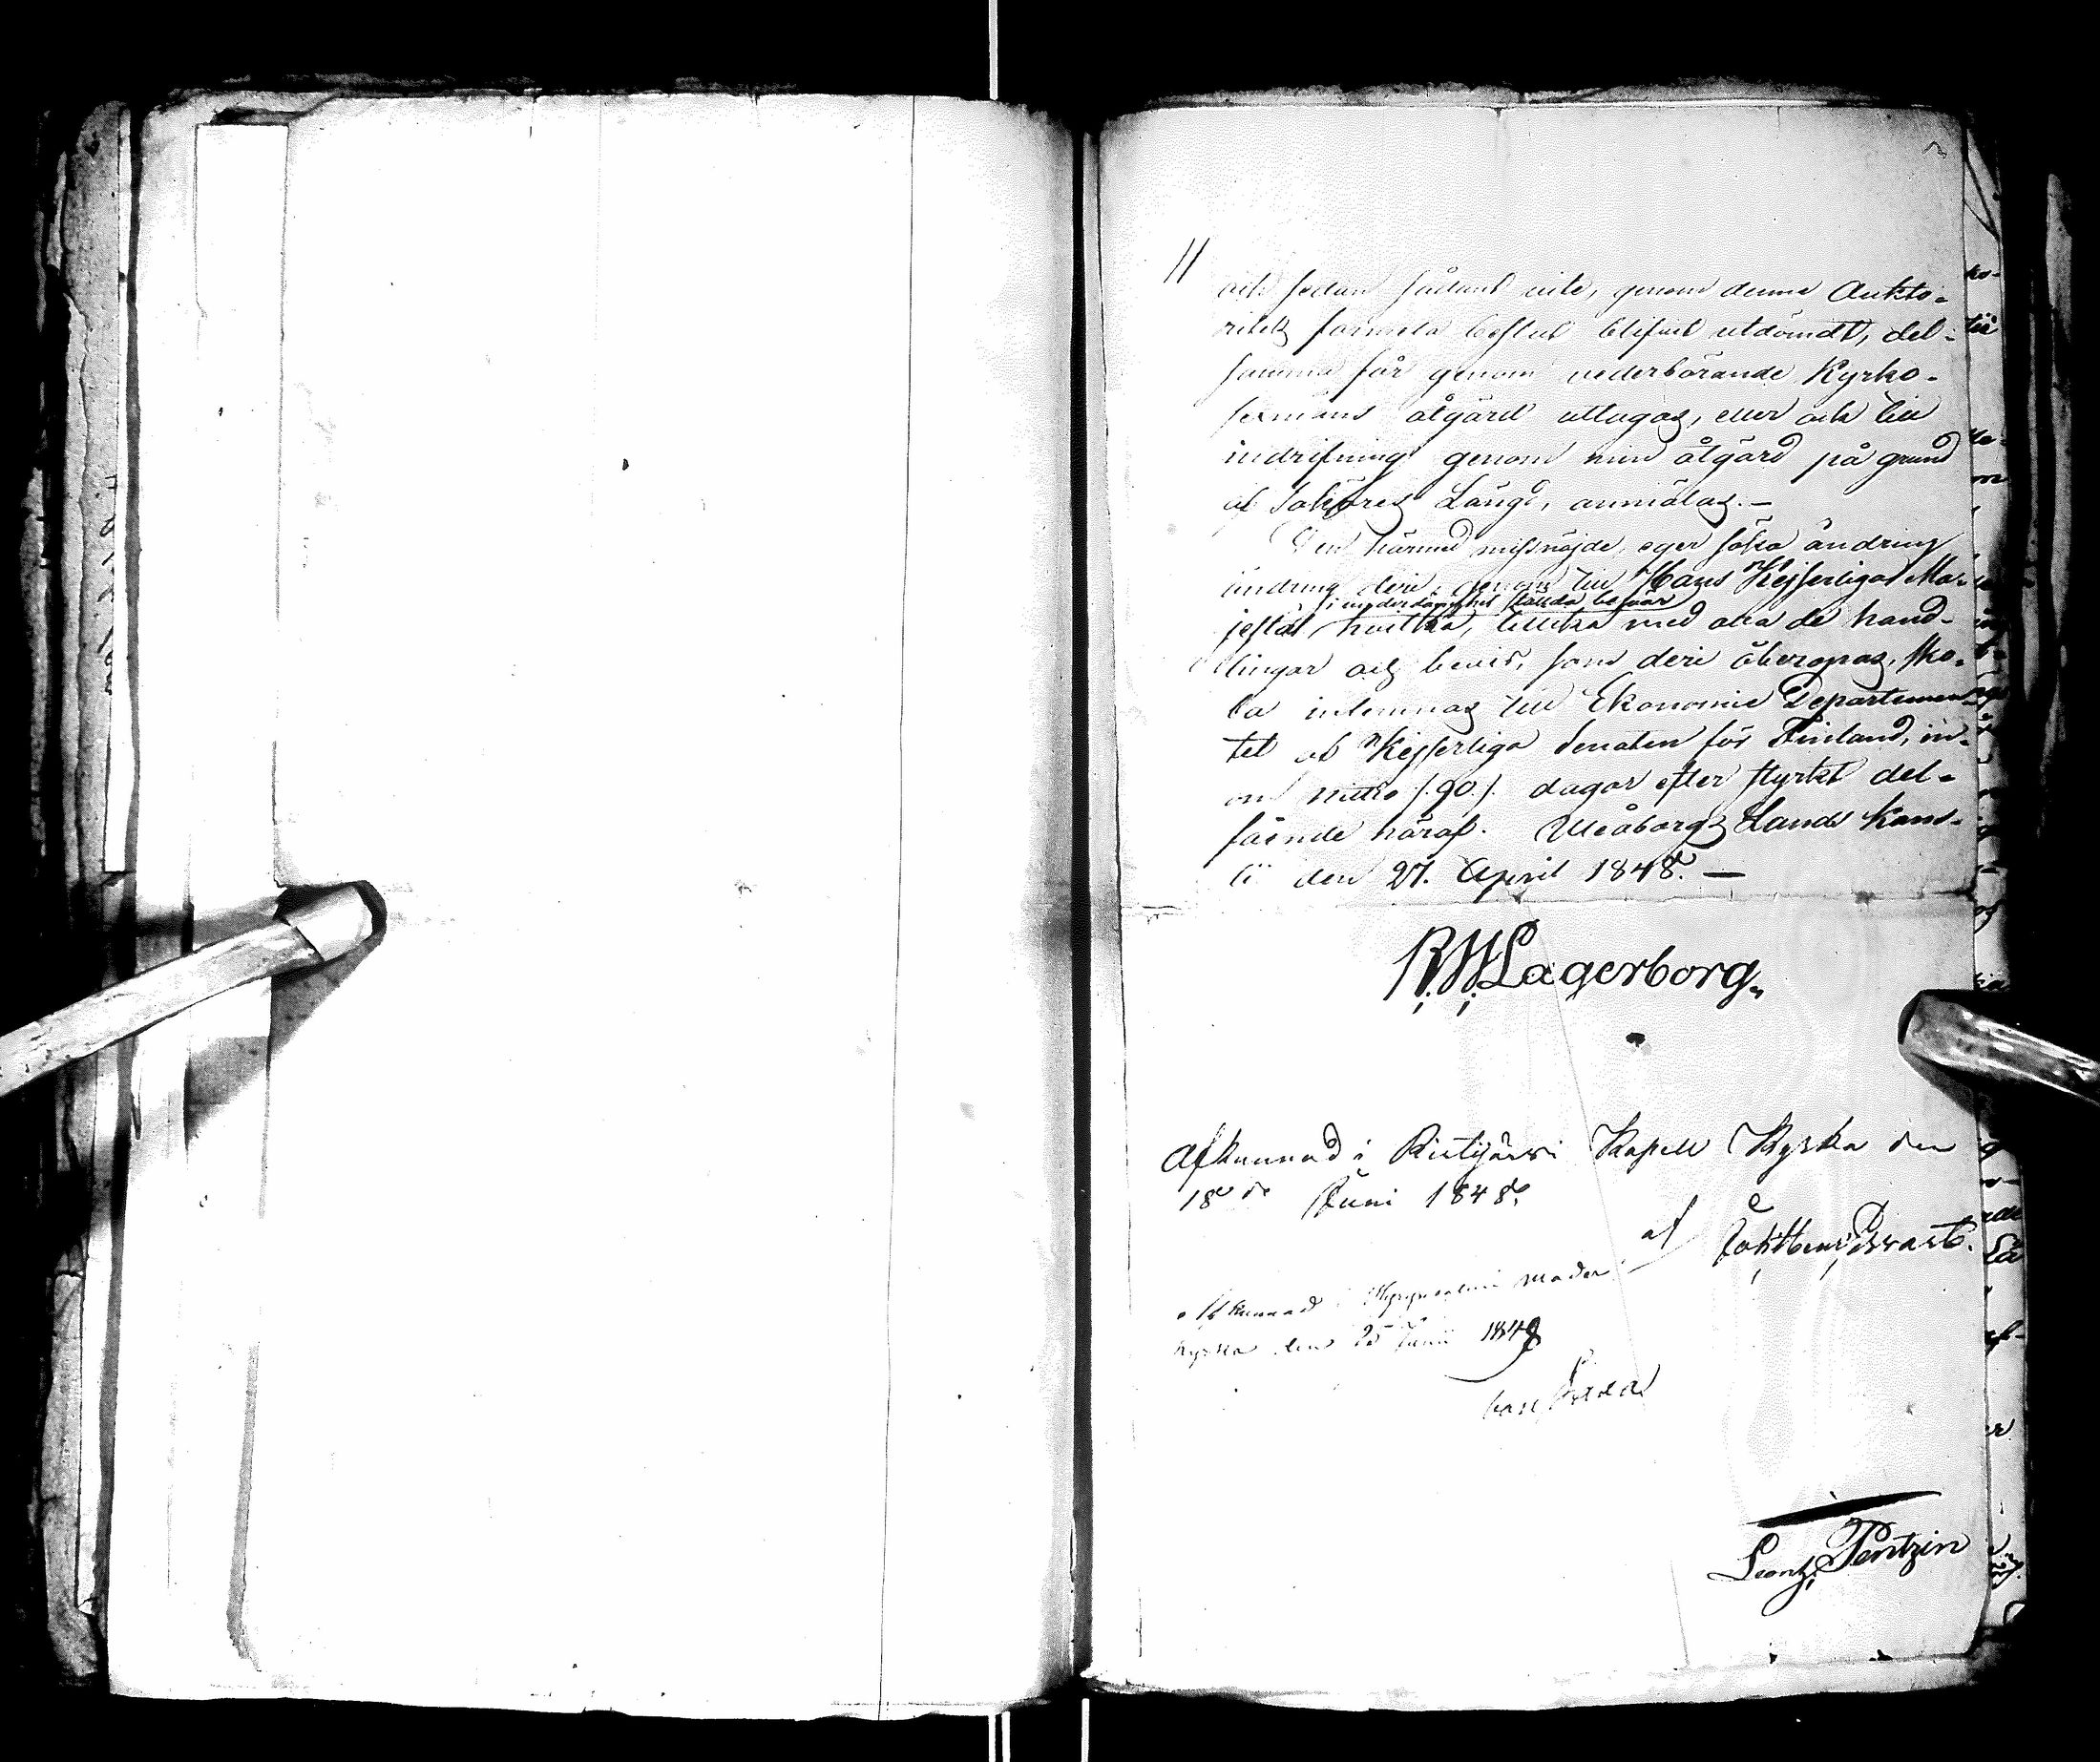 11
och sedan sådant vite, genom denne Aukto-
ritets formela beslut blifvit utdömdt, det-
samma får genom vederbörande Kyrko-
sexmans åtgärd uttagas, eller ock till
indrifning genom min åtgärd på grund
af Saköres Längd, anmälas. —
Den härmed missnöjde, eger söka ändring
ändring deri, genom till Hans Kejserliga Ma-
i underdånighet ställda besvär
jestät, hvilka, tillika med alla de hand-
lingar och bevis, som deri åberopas, sko-
la inlemnas till Ekonomie Departemen-
tet af Kejserliga Senaten för Finland, in-
om nittio /:90:/ dagar efter styrkt del-
fående häraf. Uleåborgs Lands Kans-
li den 27. April 1848. —
R. W. Lagerborg.
Afkunnad i Ristijärvi Kapell Kyrka den
18de Juni 1848.
af
Afkunnad i Hyrynsalmi Moder
kyrka den 25 Junii 1848
Pentzin